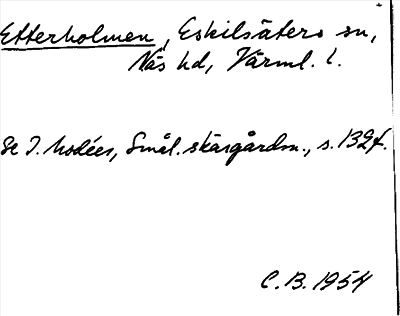 Etterholmen, Eskilsäters sn,
Näs hd, Värml. l.
Se I. Modéer, Smål. skärgårdsn., s. 132 f.
C. B. 1954